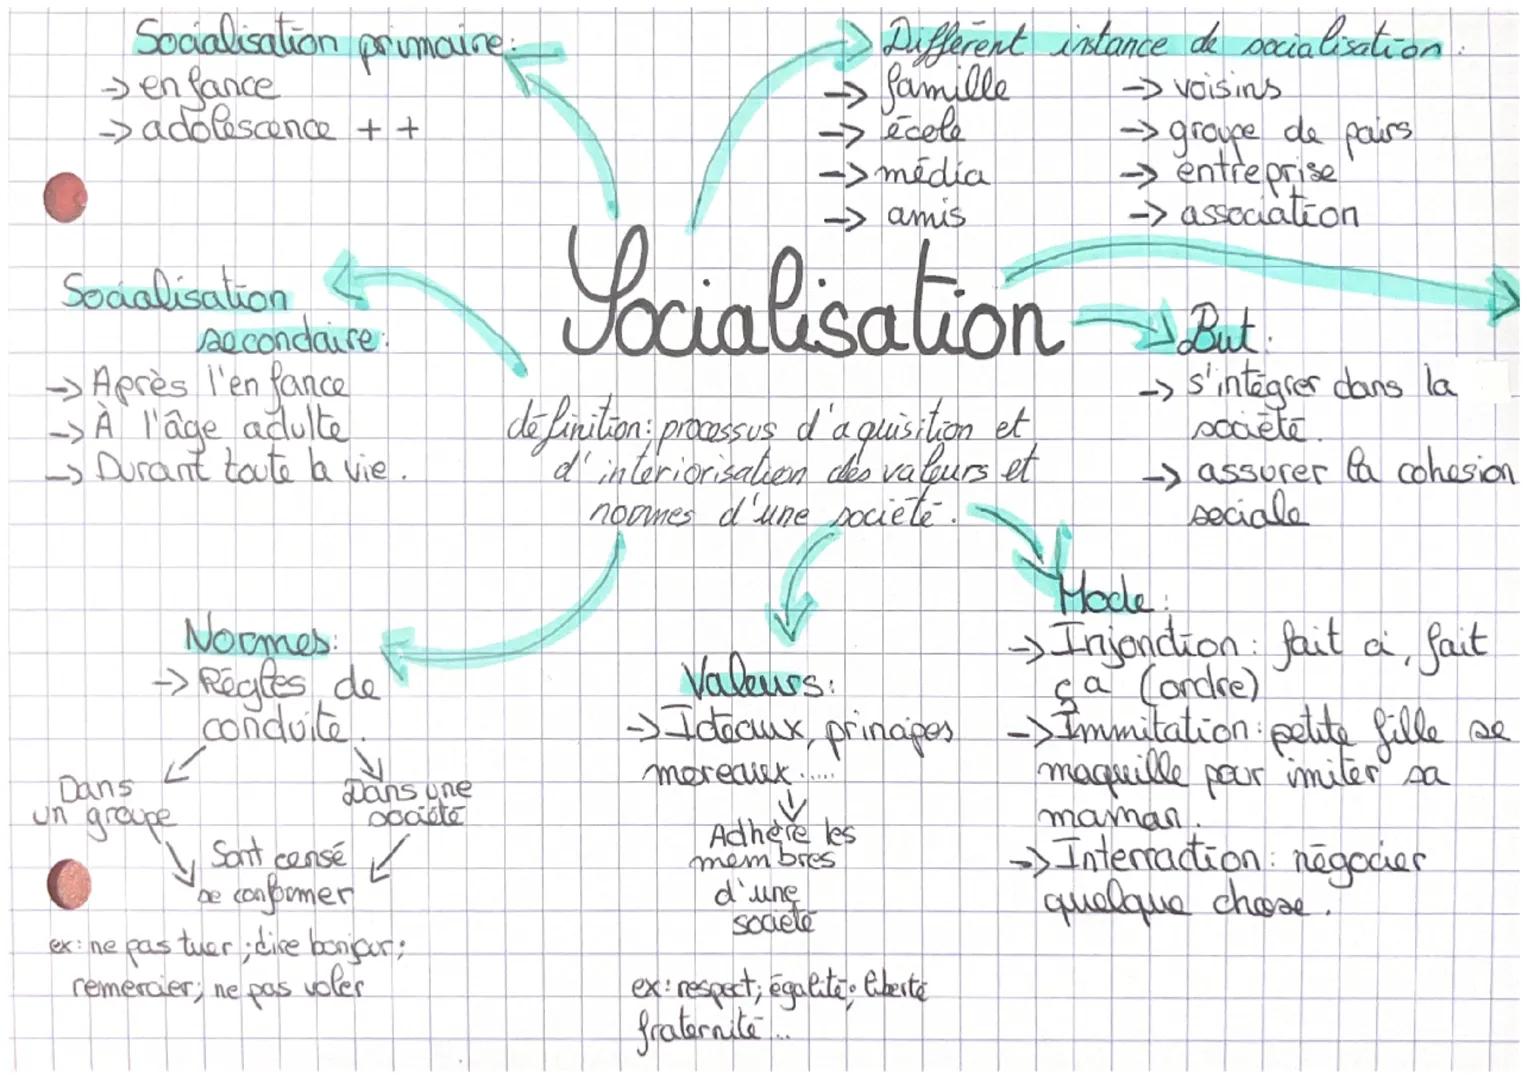 Socialisation primaire:
-> enfance
-> adolescence + +
Différent instance de socialisation:
-> famille
-> école
-> média
-> amis
-> voisins
-> groupe de pairs
-> entreprise
-> association
Socialisation
Socialisation
secondaire:
-> Après l'enfance
-> À l'âge adulte
-> Durant toute la vie.
définition: processus d'aquisition et
d'interiorisation des valeurs et
normes d'une société.
But:
-> s'intégrer dans la
société.
-> assurer la cohesion
sociale
Normes:
-> Règles de
conduite.
Dans
un groupe
Dans une
société
Sont censé
se conformer
ex: ne pas tuer; dire bonjour;
remercier; ne pas voler
Valeurs:
-> Idéaux, principes
moreaux.....
Adhère les
membres
d'une
société
ex: respect; égalité; liberté
fraternité...
Mode:
-> Injonction: fait ci, fait
ça (ordre)
-> Immitation: petite fille se
maquille pour imiter sa
maman.
-> Interraction: négocier
quelque chose.